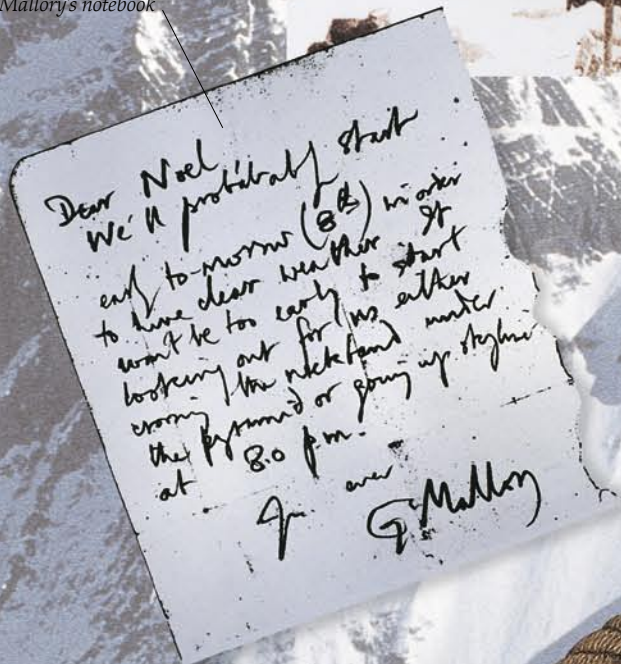 Mallory's notebook
Dear Noel
We'll probably start
early to-morrow (8th) in order
to have clear weather. It
won't be too early to start
looking out for us either
crossing the rockband under
the pyramid or going up skyline
at 8.0 pm.
Yrs ever
G Mallory